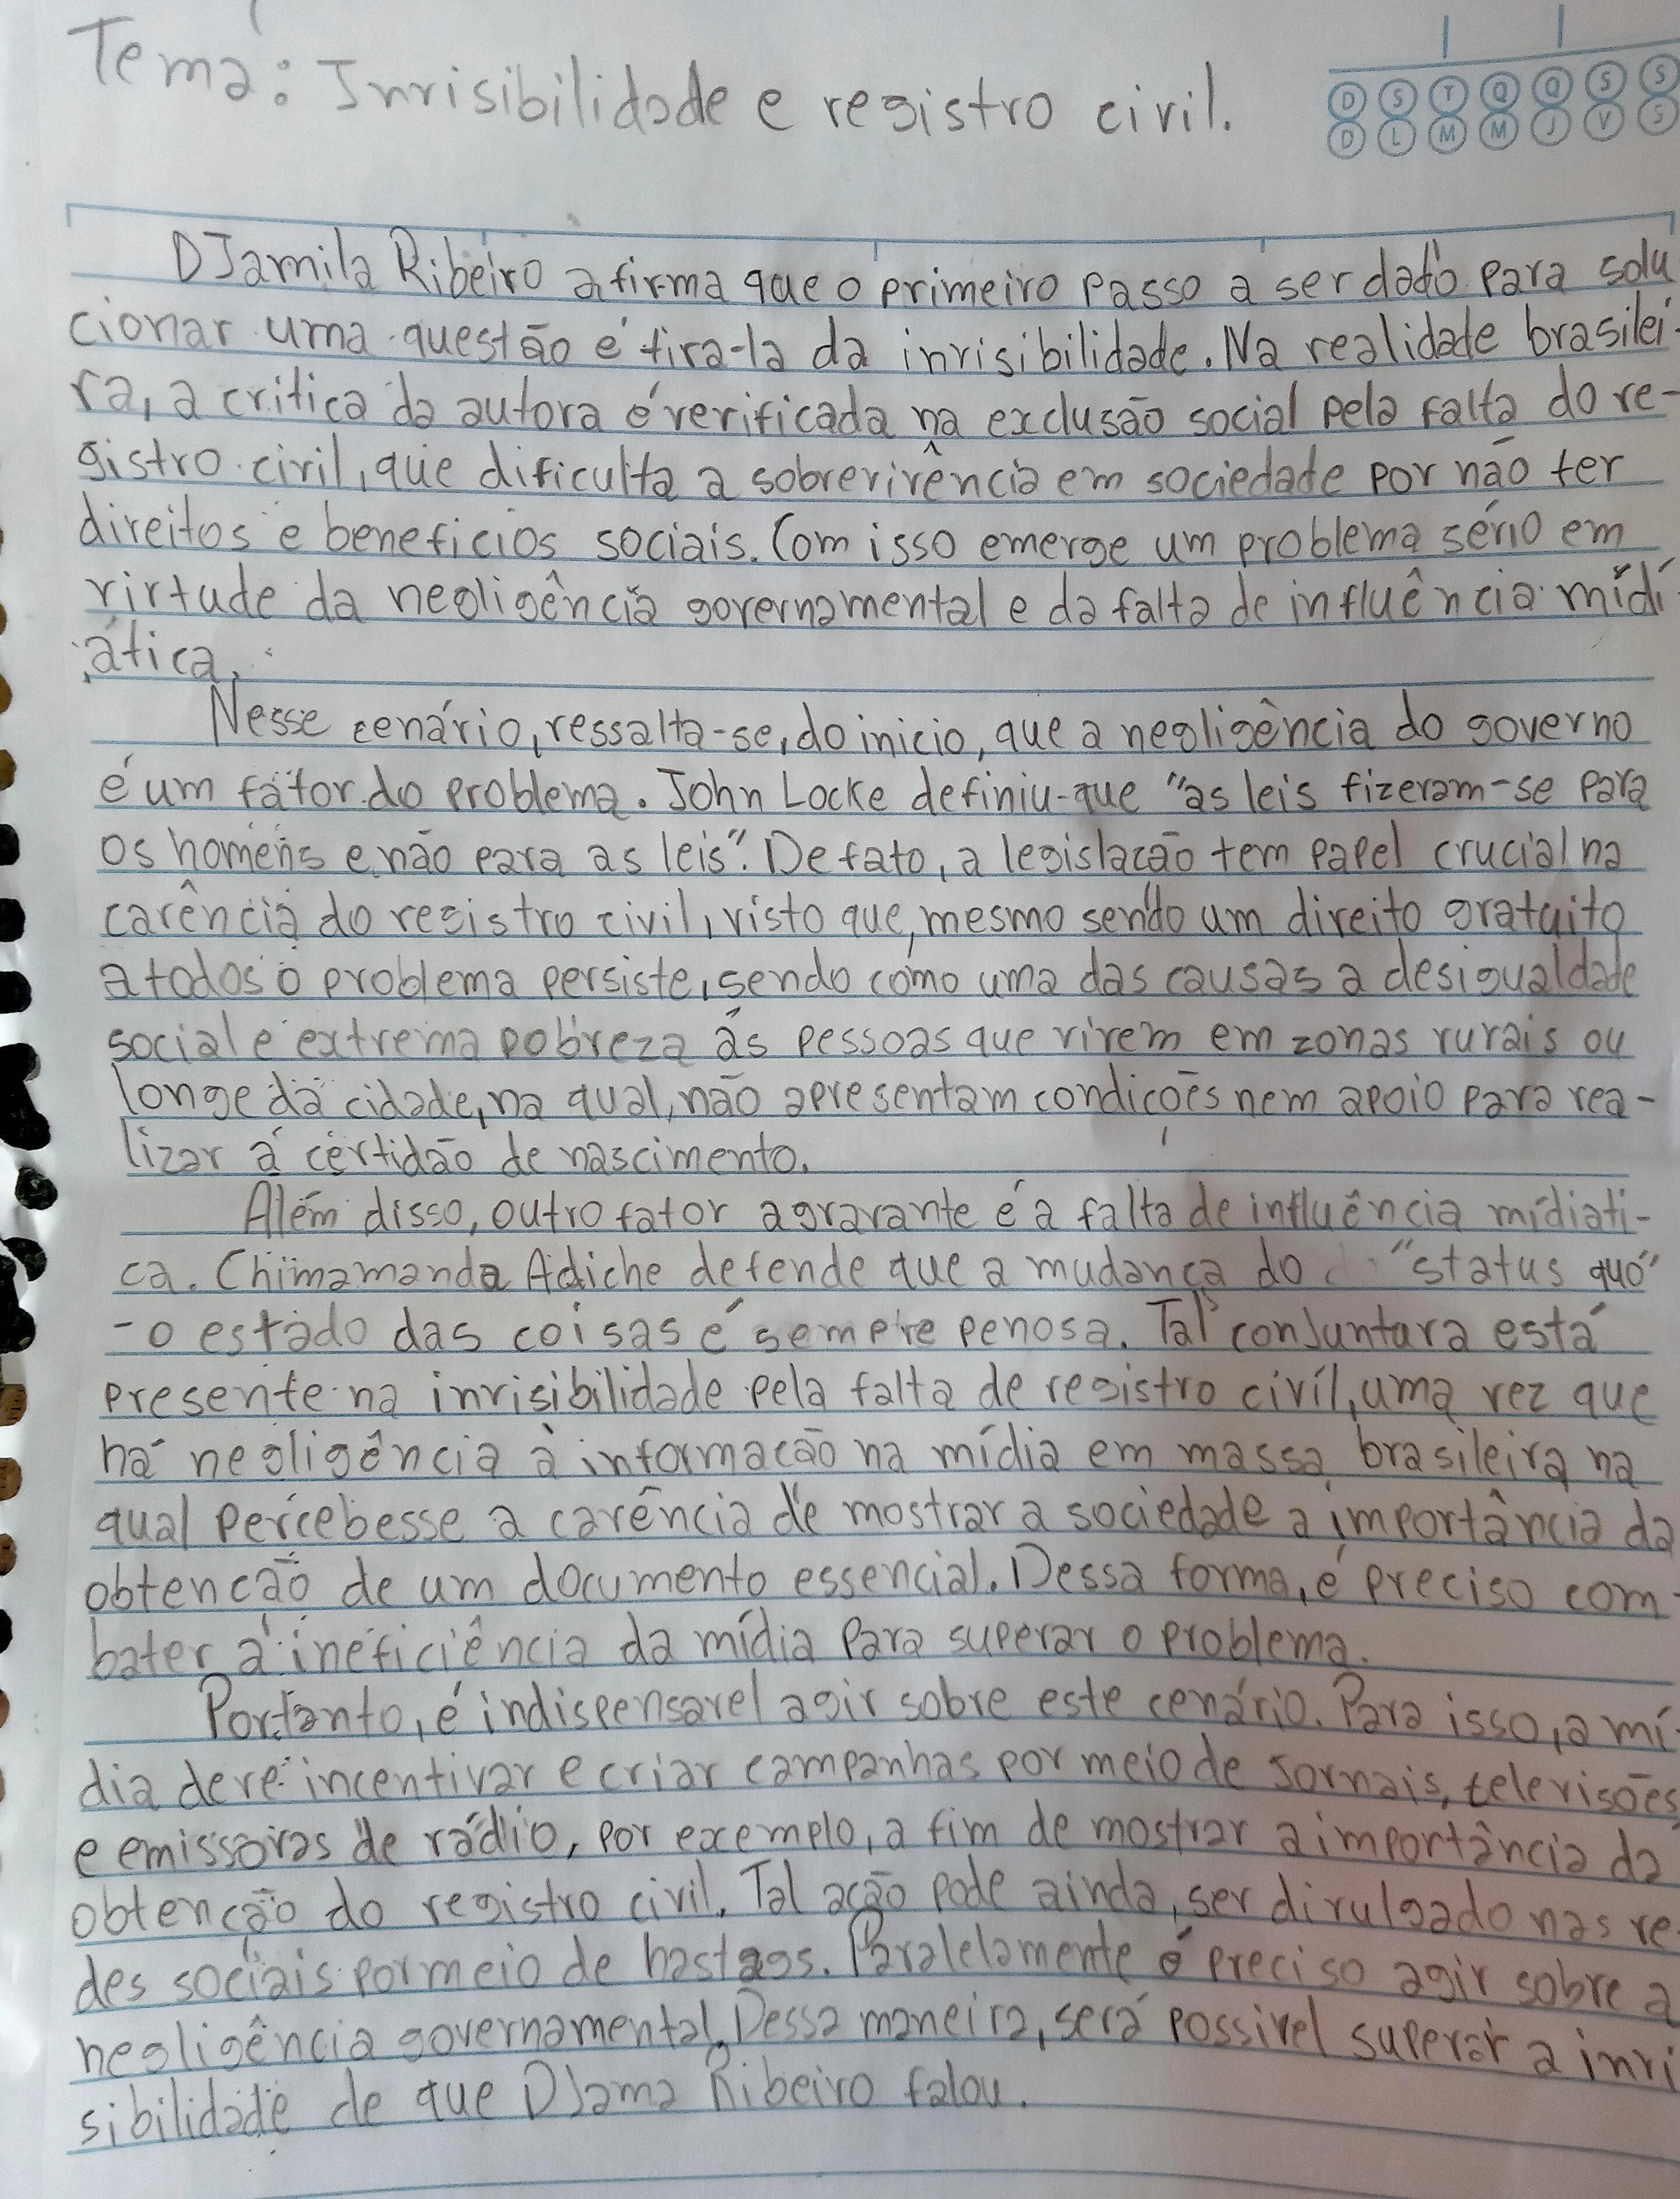 Tema: Invisibilidade e registro civil.
D S T Q Q S S
D L M M J V S
DJamila Ribeiro afirma que o primeiro passo a ser dado para solu
cionar uma questão é tira-la da invisibilidade. Na realidade brasilei-
ra, a critica da autora é verificada na exclusão social pela falta do re-
gistro civil, que dificulta a sobrevivência em sociedade por não ter
direitos e beneficios sociais. Com isso emerge um problema sério em
virtude da negligência governamental e da falta de influência mídi
ática.
Nesse cenário, ressalta-se, do inicio, que a negligência do governo
é um fator do problema. John Locke definiu que "as leis fizeram-se para
os homens e não para as leis". De fato, a legislacão tem papel crucial na
carência do registro civil, visto que, mesmo sendo um direito gratuito
a todos o problema persiste, sendo como uma das causas a desigualdade
social e extrema pobreza ás pessoas que vivem em zonas rurais ou
longe da cidade, na qual, não apresentam condicões nem apoio para rea-
lizar a certidão de nascimento.
Além disso, outro fator agravante é a falta de influência mídiati-
ca. Chimamanda Adiche defende que a mudança do "status quo"
- o estado das coisas é sempre penosa. Tal conJuntura está
presente na invisibilidade pela falta de registro civíl, uma vez que
há negligência à informacão na mídia em massa brasileira na
qual percebesse a carência de mostrar a sociedade a importância da
obtencão de um documento essencial. Dessa forma, é preciso com
bater a ineficiência da mídia para superar o problema.
Portanto, é indispensavel agir sobre este cenário. Para isso, a mí
dia deve incentivar e criar campanhas por meio de Jornais, televisões
e emissoras de rádio, por exemplo, a fim de mostrar a importância da
obtenção do registro civil. Tal ação pode ainda, ser divulgado nas re
des sociais por meio de hastags. Paralelamente é preciso agir sobre a
negligência governamental. Dessa maneira, será possivel superar a invi
sibilidade de que DJama Ribeiro falou.